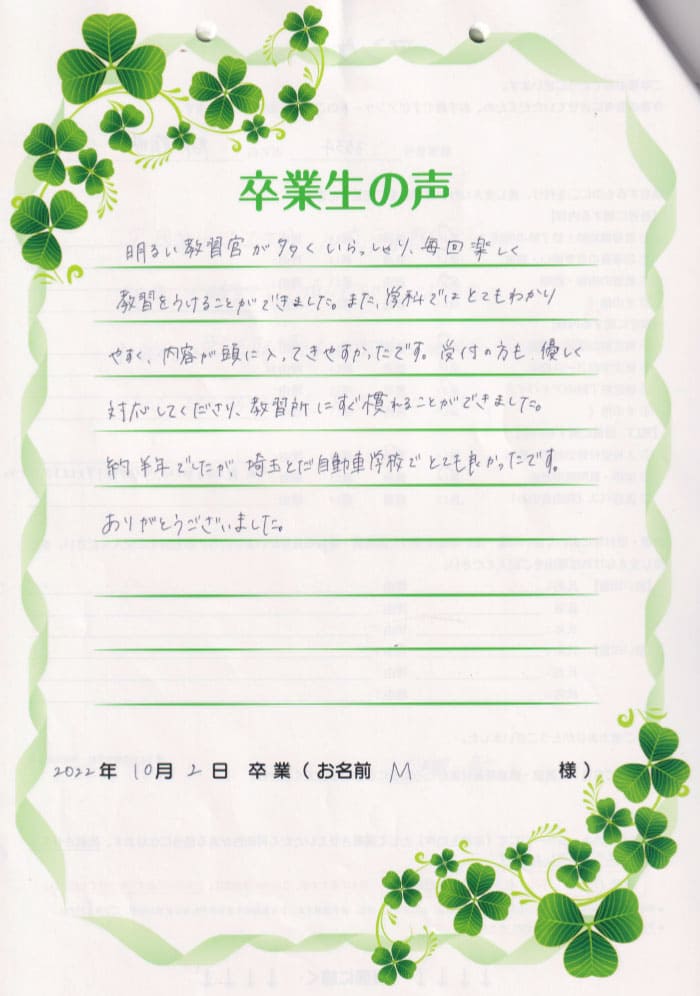 卒業生の声
明るい教習官が多くいらっしゃり、毎回楽しく
教習をうけることができました。また、学科ではとてもわかり
やすく、内容が頭に入ってきやすかったです。受付の方も、優しく
対応してくださり、教習所にすぐ慣れることができました。
約半年でしたが、埼玉とだ自動車学校でとても良かったです。
ありがとうございました。
2022年 10月 2日 卒業(お名前 M 様)